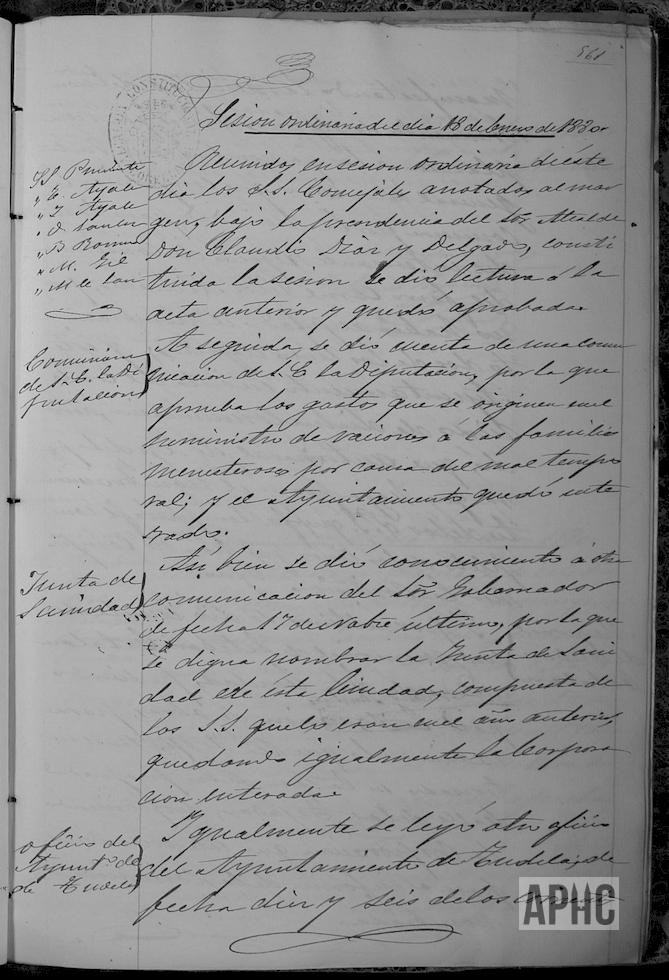 561
Sesion ordinaria del dia 18 de Enero de 1880.
SS. Presidente
" E. Ayala
" J. Ayala
" B. Roman
" M. Gil
" M. de San
Reunidos en sesion ordinaria de éste
dia los S.S. Concejales anotados al mar
gen, bajo la presidencia del Sor Alcalde
Don Claudio Diaz y Delgado, consti
tuida la sesion se dió lectura á la
acta anterior y quedó aprobada.
Comunicon
de S. E. la Di
putacion
A seguida se dió cuenta de una comu
nicacion de S. E. la Diputacion, por la que
aprueba los gastos que se originen en el
suministro de raciones á las familias
menesterosas por causa del mal tempo
ral; y el Ayuntamiento quedó ente
rado.
Junta de
Sanidad
Asi bien se dió conocimiento á otra
comunicacion del Sor Gobernador
de fecha 17 de Nobre último, por la que
se digna nombrar la Junta de Sani
dad de ésta Ciudad, compuesta de
los S.S. que lo eran en el año anterior,
quedando igualmente la Corpora
cion enterada.
oficio del
Ayunto de
de Tudela
Igualmente se leyó otro oficio
del Ayuntamiento de Tudela, de
fecha diez y seis de los corrients
APHC